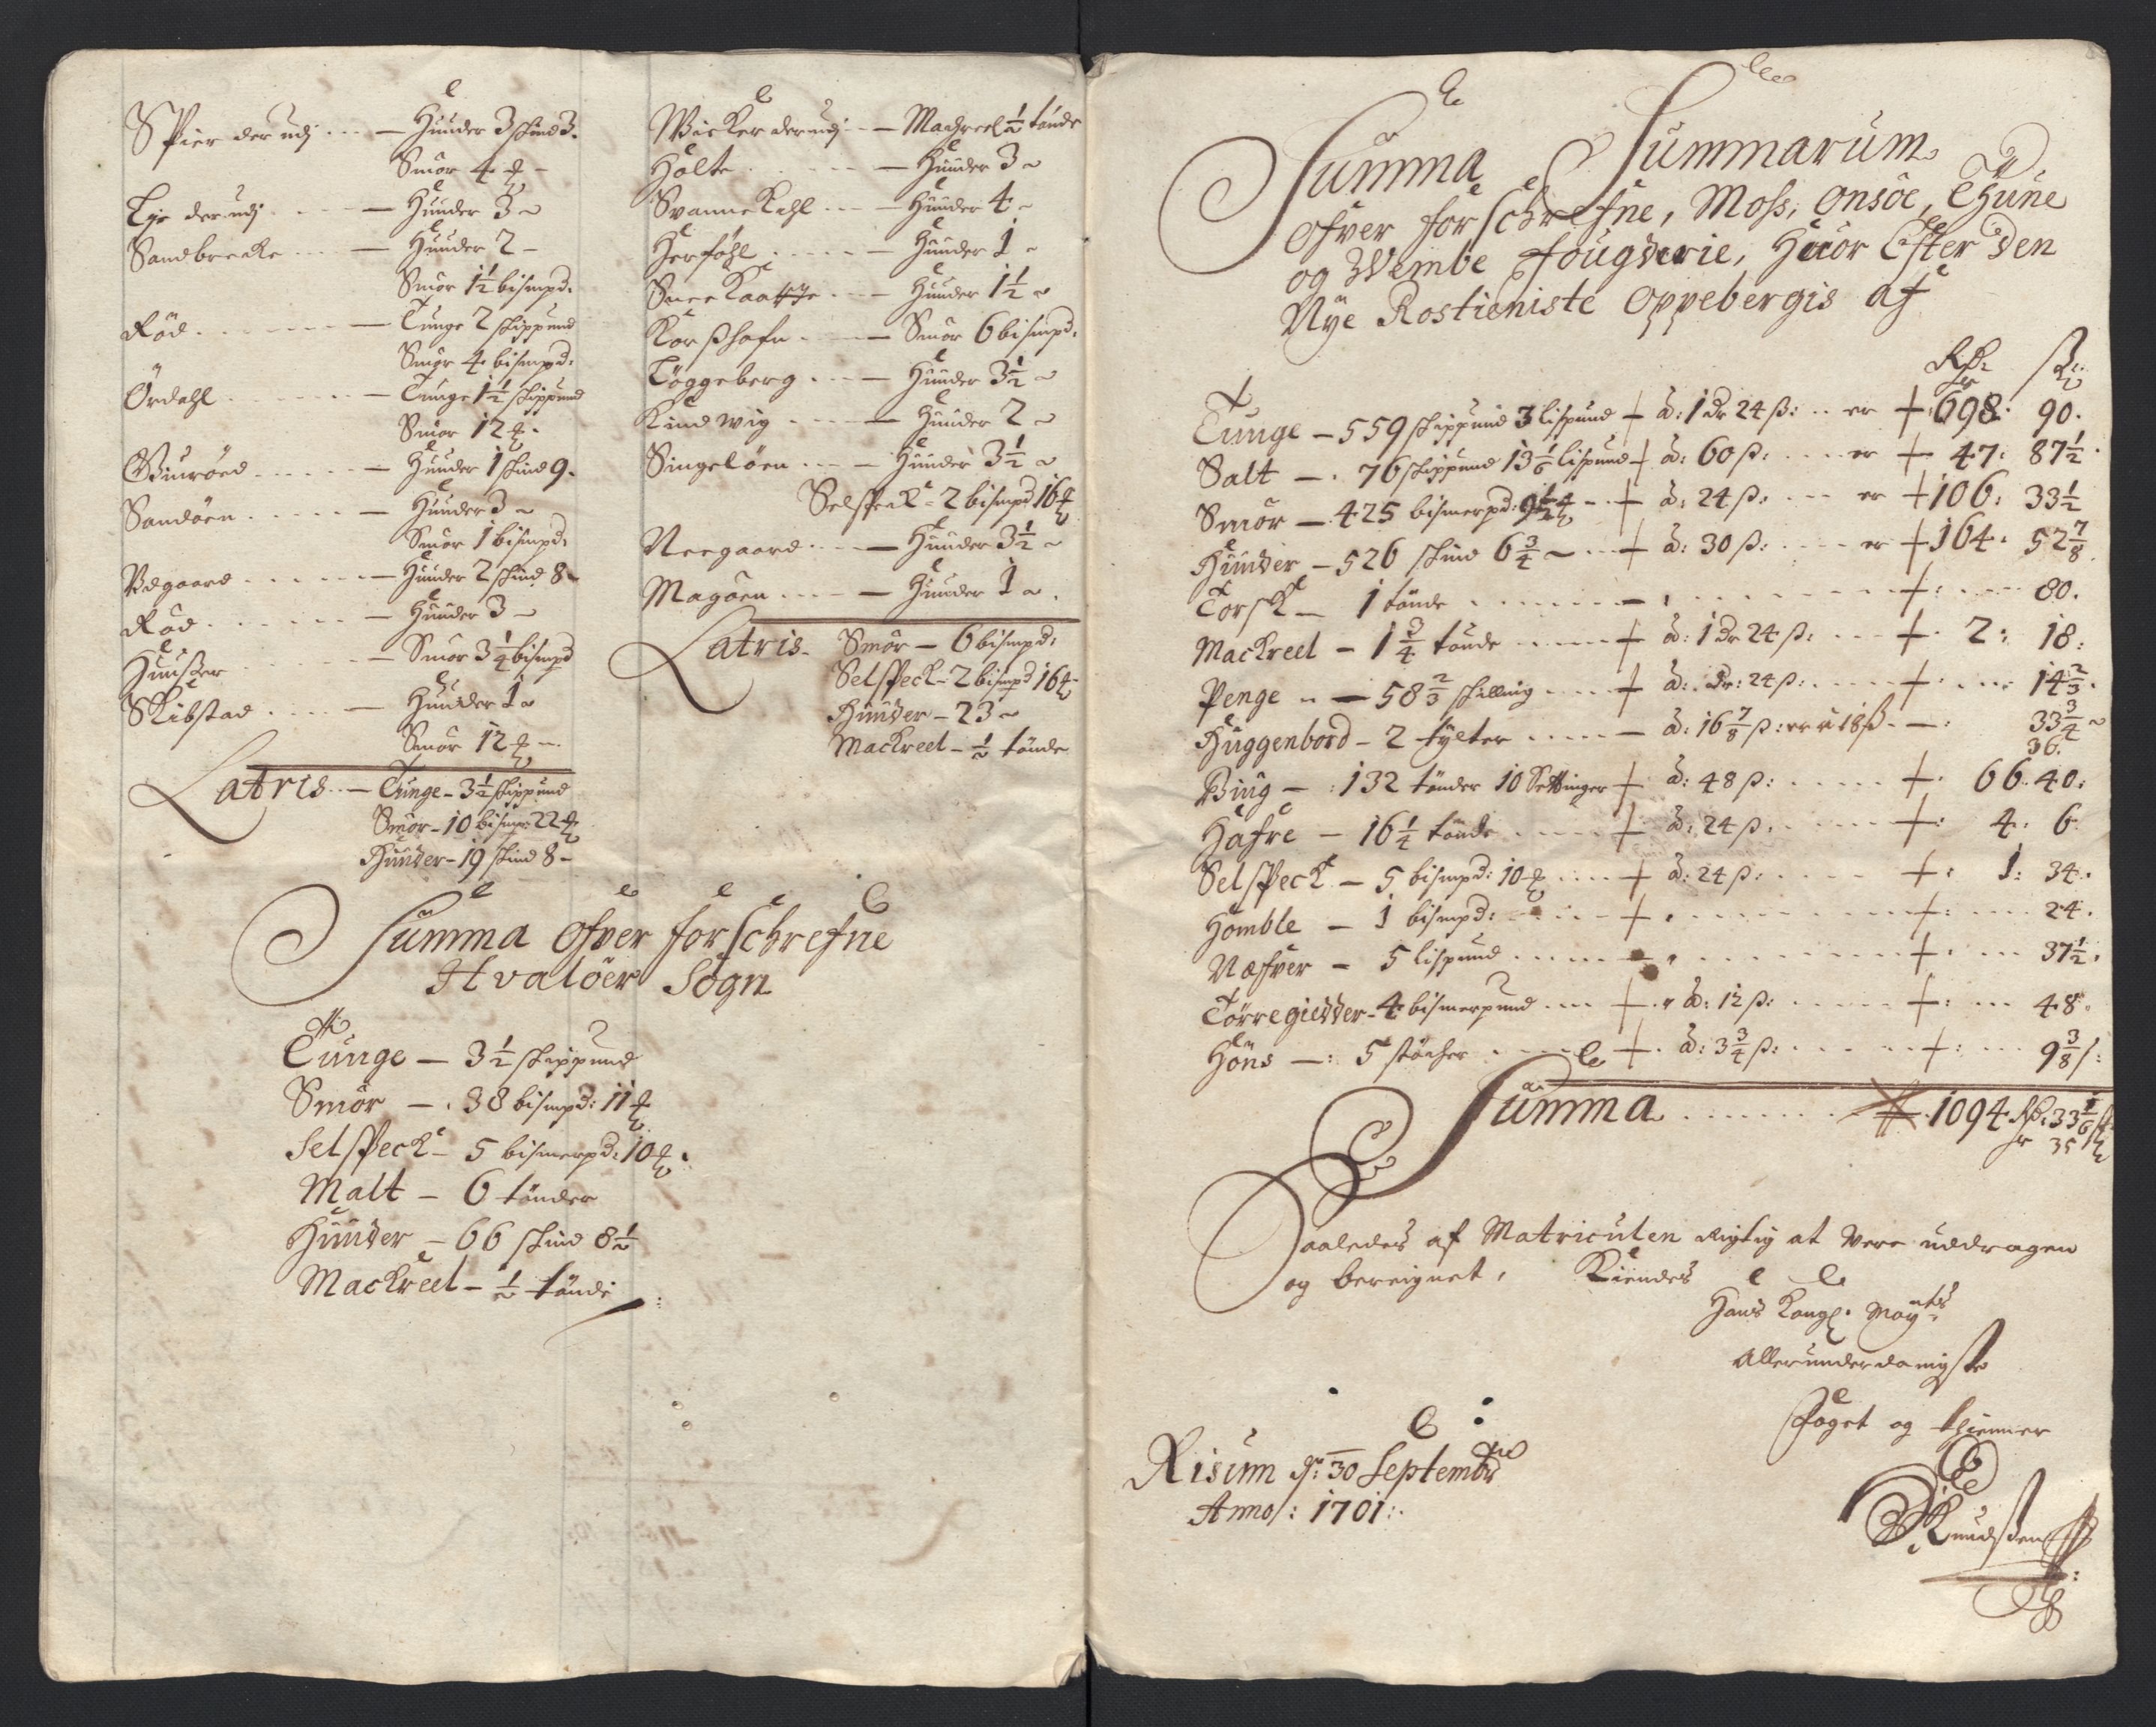 Spier derudj - - - Huuder 3 skind 3.
Smör 4 ℔ -
Eje derudj - - - Huuder 3 ~
Sandbrecke - - - Huuder 2 -
Smör 1½ bismpd:
Röd - - - Tunge 2 skippund
Smör 4 bismpd:
Ördahl - - - Tunge 1½ skippund
Smör 12 ℔.
Guuröed - - - Huuder 1 skind 9.
Sandöen - - - Huuder 3 ~
Smör 1 bismpd:
Vdgaard - - - Huuder 2 skind 8 -
Röd - - - Huuder 3 -
Huuser - - - Smör 3¼ bismpd
Skibstad - - - Huuder 1 ~
Smör 12 ℔ -
Latris - Tunge - 3½ skippund
Smör - 10 bismp: 22 ℔
Huuder - 19 skind 8 -
Wicker derudj - - Mackreel ½ tönde
Holte - - - Huuder 3 ~
Svannekehl - - - Huuder 4 -
Herföhl - - - Huuder 1 ~
Sneekaatje - - Huuder 1½ ~
Korshafn - - - Smör 6 bismpd:
Löggeberg - - - Huuder 3½ ~
Kindwig - - - Huuder 2 ~
Singelöen - - - Huuder 3½ ~
Selspeck - 2 bismpd 16 ℔
Neegaard - - - Huuder 3½ ~
Magöen - - - Huuder 1 ~.
Latris - Smör - 6 bismpd:
Selspeck - 2 bismpd 16 ℔
Huuder - 23 ~
Mackreel - ½ tönde
Summa ofver forschrefne
Hvalöer Sogn
Tunge - 3½ skippund
Smör - 38 bismpd: 11 ℔
Selspeck - 5 bismerpd: 10 ℔.
Malt - 6 tönder
Huuder - 66 skind 8½
Mackreel - ½ tönde
Summa Summarum
ofver forschrefne, Moss, Onsöe, Thune
og Wembe Fougderie, Huor Efter den
Nye Rostieniste Oppebergis af
Rdr ß:
Tunge - 559 skippund 3 lispund + à: 1 dr 24 ß: .. er + 698: 90.
Salt - 76 skippund 13⅙ lispund + à: 60 ß: ... er + 47: 87½.
Smör - 425 bismerpd: 9½ ℔ - + à: 24 ß: ... er + 106: 33½
Huuder - 526 skind 6¾ ~ ... + à: 30 ß: ... er + 164. 52⅞
Torsk - 1 tönde - - - + ... 80.
Mackreel - 1¾ tönde ... + à: 1 dr 24 ß: ... + 2: 18:
Penge - - 58⅔ skilling ... + à: dr: 24 ß: ... + ... 14⅔.
Huggenbord - 2 tylter ... - à: 16⅞ ß: er à 18 ß - -: 33¾ ~
36.
Biug - 132 tönder 10 Settinger + à: 48 ß: ... + 66. 40:
Hafre - 16¼ tönde ... + à: 24 ß. ... + 4. 6.
Selspeck - 5 bismpd: 10 ℔ ... + à: 24 ß: ... + 1: 34.
Homble - 1 bismpd: ... + ... + ... 24.
Næfver - 5 lispund ... + ... 37½.
Törregiedder - 4 bismerpund ... + à: 12 ß: ... +: ... 48.
Höns -: 5 støcker ... + à: 3¾ ß: ... +: ... 9⅜ /:
Summa ... 1094 Rdr: 33⅙ ß
35
Saaledes af Matriculen Rigtig at Vere uddragen
og bereignet, Kiendes
Hans Kongl: Mayts
Allerunderdanigste
Foget og thiener
Knudssen
Risum dn: 30 Septembr
Anno/: 1701: